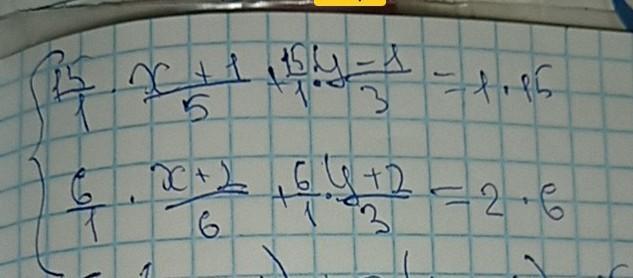 { 15/1 · (x + 1)/5 + 15/1 · (y - 1)/3 = 1 · 15
{ 6/1 · (x + 2)/6 + 6/1 · (y + 2)/3 = 2 · 6